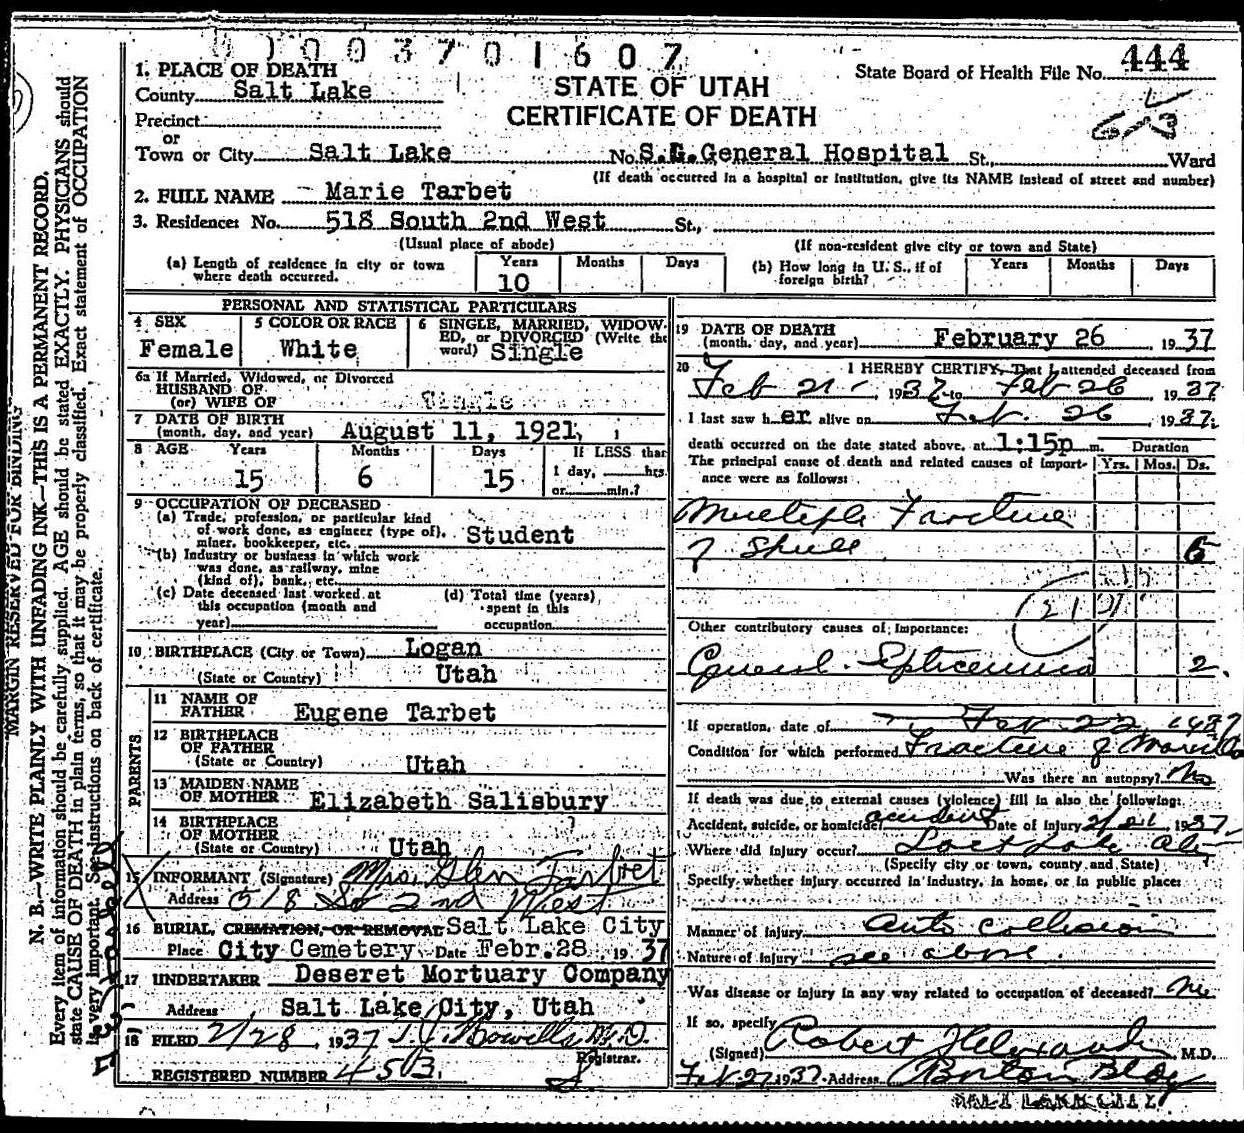 01003701607
1. PLACE OF DEATH
County Salt Lake
STATE OF UTAH
CERTIFICATE OF DEATH
State Board of Health File No. 444
Precinct
or
Town or City Salt Lake No. S.L. General Hospital St., Ward
(If death occurred in a hospital or institution, give its NAME instead of street and number)
2. FULL NAME Marie Tarbet
3. Residence: No. 518 South 2nd West St.,
(Usual place of abode) (If non-resident give city or town and State)
(a) Length of residence in city or town where death occurred. Years 10 Months Days
(b) How long in U. S., if of foreign birth? Years Months Days
PERSONAL AND STATISTICAL PARTICULARS
4 SEX Female
5 COLOR OR RACE White
6 SINGLE, MARRIED, WIDOWED, or DIVORCED (Write the word) Single
6a If Married, Widowed, or Divorced
HUSBAND OF
(or) WIFE OF Single
7 DATE OF BIRTH
(month, day, and year) August 11, 1921
8 AGE Years 15 Months 6 Days 15 If LESS than 1 day, hrs. or min.?
9 OCCUPATION OF DECEASED
(a) Trade, profession, or particular kind of work done, as engineer (type of), miner, bookkeeper, etc. Student
(b) Industry or business in which work was done, as railway, mine (kind of), bank, etc.
(c) Date deceased last worked at this occupation (month and year)
(d) Total time (years) spent in this occupation
10 BIRTHPLACE (City or Town) Logan
(State or Country) Utah
PARENTS
11 NAME OF FATHER Eugene Tarbet
12 BIRTHPLACE OF FATHER
(State or Country) Utah
13 MAIDEN NAME OF MOTHER Elizabeth Salisbury
14 BIRTHPLACE OF MOTHER
(State or Country) Utah
15 INFORMANT (Signature) Mrs. Glen Tarbet
Address 518 So 2nd West
16 BURIAL, CREMATION, OR REMOVAL Salt Lake City
Place City Cemetery Date Febr. 28 1937
17 UNDERTAKER Deseret Mortuary Company
Address Salt Lake City, Utah
18 FILED 2/28, 1937 T. J. Howells M.D.
Registrar.
REGISTERED NUMBER 4503
19 DATE OF DEATH
(month, day, and year) February 26 1937
20 I HEREBY CERTIFY, That I attended deceased from
Feb 21, 1937 to Feb 26 1937
I last saw her alive on Feb. 26 1937.
death occurred on the date stated above, at 1:15p m.
The principal cause of death and related causes of importance were as follows: Duration Yrs. Mos. Ds.
Multiple Fracture
of Skull 5
21
Other contributory causes of importance:
General Septicemia 2.
If operation, date of Feb 22, 1937
Condition for which performed Fracture of
Was there an autopsy? No
If death was due to external causes (violence) fill in also the following:
Accident, suicide, or homicide? accident Date of injury 2/21 1937
Where did injury occur? Salt Lake City
(Specify city or town, county and, State)
Specify whether injury occurred in industry, in home, or in public place:
Manner of injury Auto collision
Nature of injury see above.
Was disease or injury in any way related to occupation of deceased? No
If so, specify
(Signed) Robert Alexander M.D.
Feb 27 1937 Address Boston Bldg
SALT LAKE CITY
MARGIN RESERVED FOR BINDING
N. B.—WRITE PLAINLY WITH UNFADING INK—THIS IS A PERMANENT RECORD.
Every item of information should be carefully supplied. AGE should be stated EXACTLY. PHYSICIANS should
state CAUSE OF DEATH in plain terms, so that it may be properly classified. Exact statement of OCCUPATION
is very important. See instructions on back of certificate.